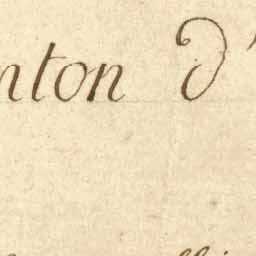 nton d'